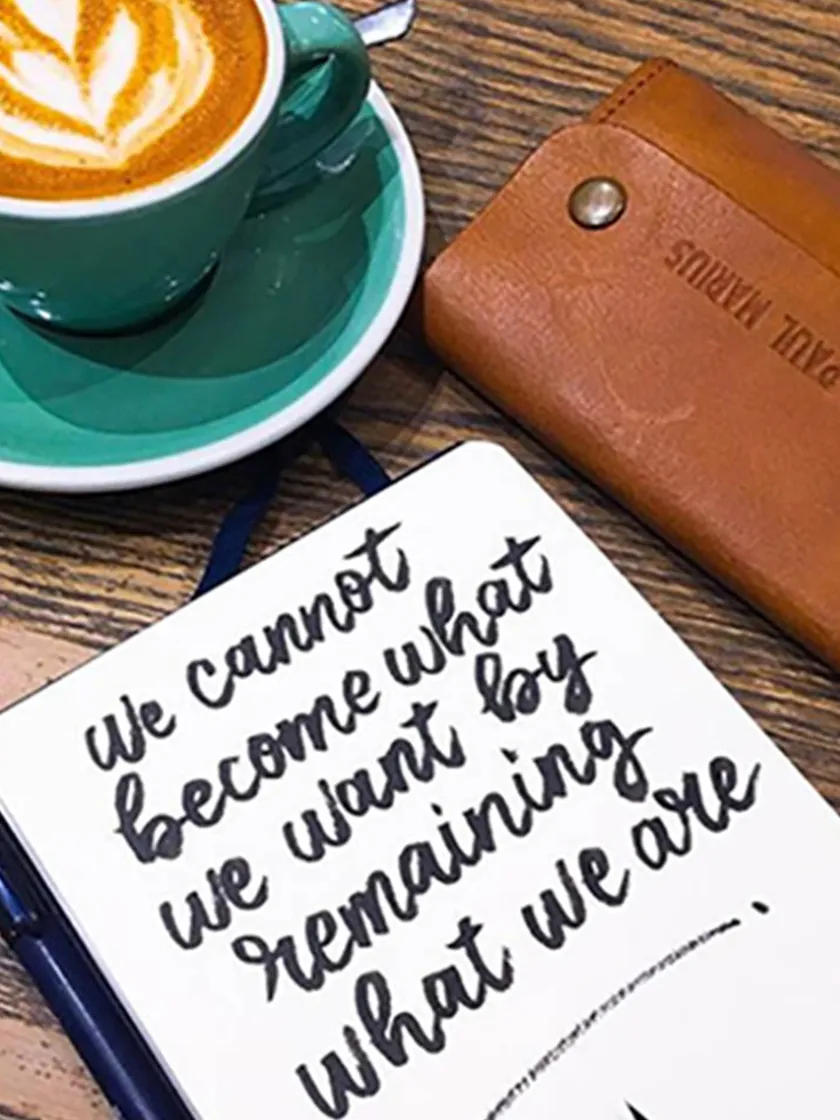 We cannot
become what
we want by
remaining
what we are
PAUL MARIUS